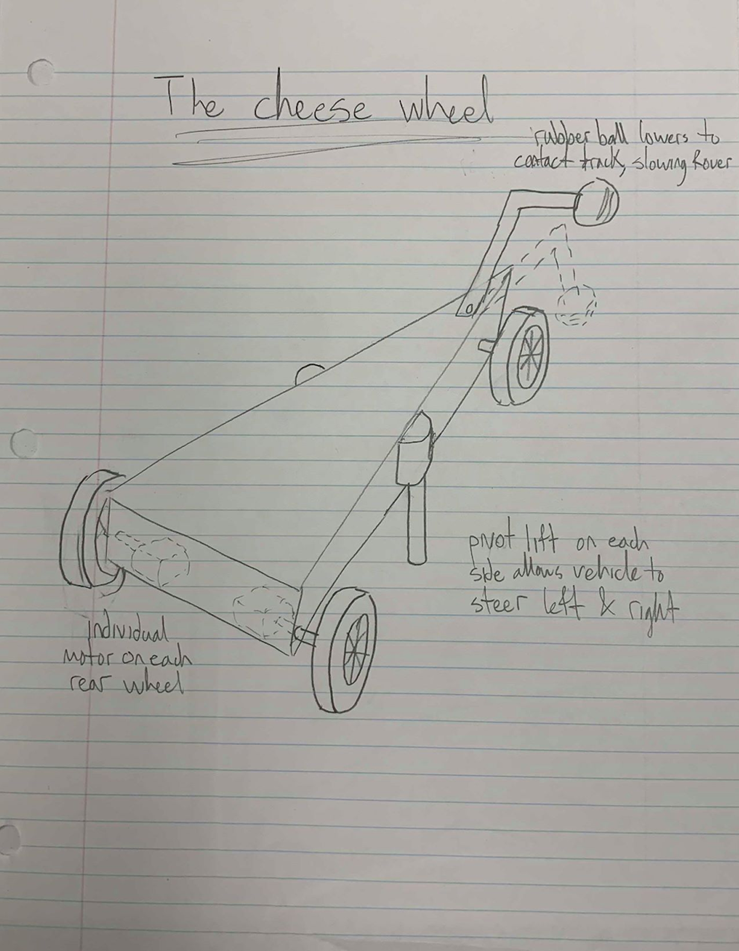 The cheese wheel
rubber ball lowers to
contact track, slowing Rover
pivot lift on each
side allows vehicle to
steer left & right
individual
motor on each
rear wheel